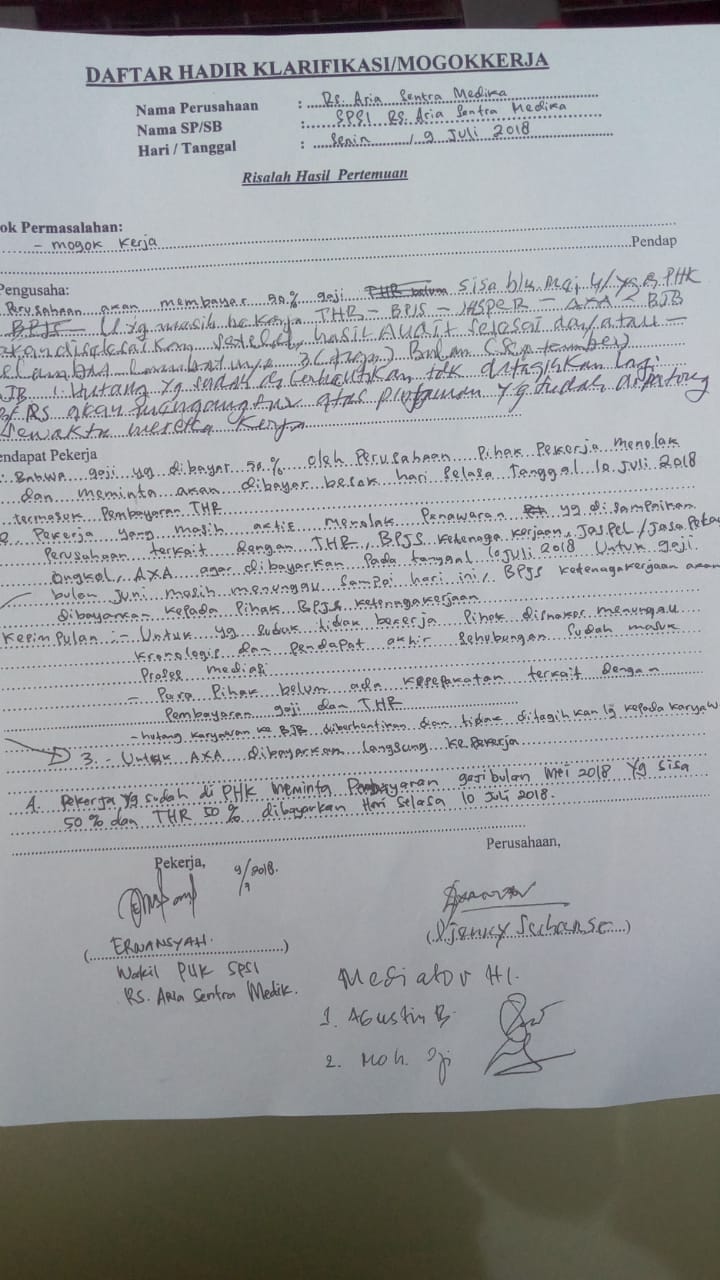 DAFTAR HADIR KLARIFIKASI/MOGOKKERJA
Nama Perusahaan : RS. Aria Sentra Medika
Nama SP/SB : SPSI RS. Aria Sentra Medika
Hari / Tanggal : Senin / 9 Juli 2018
Risalah Hasil Pertemuan
ok Permasalahan:
- mogok kerja
Pendap
Pengusaha:
Perusahaan akan membayar 50.% gaji THR belum sisa bln Mei u/ yg di PHK
BPJS U yg masih bekerja THR - BPJS - JASPEL - AXA BJB
akan diselesaikan setelah hasil Audit selesai dan/atau
selambat lambatnya 3 (tiga) Bulan (September)
JB : Hutang yg sudah di berhentikan tdk ditagihkan lagi
RS akan atas pinjaman yg sudah dipotong
sewaktu mereka kerja
endapat Pekerja
Bahwa gaji yg dibayar 50.% oleh Perusahaan Pihak Pekerja menolak
dan meminta akan dibayar besok hari Selasa Tanggal 10 Juli 2018
termasuk Pembayaran THR
2. Pekerja yang masih aktif menolak Penawaran yg di sampaikan
Perusahaan terkait dengan THR, BPJS Ketenaga kerjaan, Jaspel/Jasa Poto
ongkol, AXA agar dibayarkan Pada tanggal 10 Juli 2018 Untuk gaji
bulan Juni masih menunggu sampai hari ini, BPJS ketenagakerjaan akan
dibayarkan kepada Pihak BPJS ketenagakerjaan
Kesimpulan :- Untuk yg sudah tidak bekerja Pihak disnaker menunggu
Kronologis dan Pendapat akhir Sehubungan Sudah masuk
Proses mediasi
- Para Pihak belum ada kesepakatan terkait dengan
Pembayaran gaji dan THR
- hutang karyawan ke BJB diberhentikan dan tidak ditagihkan lg kepada karyaw
3. - Untuk AXA dibayarkan langsung ke Pekerja
4. Pekerja yg sudah di PHK meminta Pembayaran gaji bulan Mei 2018 yg sisa
50 % dan THR 50 % dibayarkan Hari Selasa 10 Juli 2018.
Pekerja, 9/7 2018.
Perusahaan,
(ERWANSYAH.)
Wakil PUK SPSI
RS. Aria Sentra Medik.
Mediator HI.
1. Agustin B.
2. Moh.